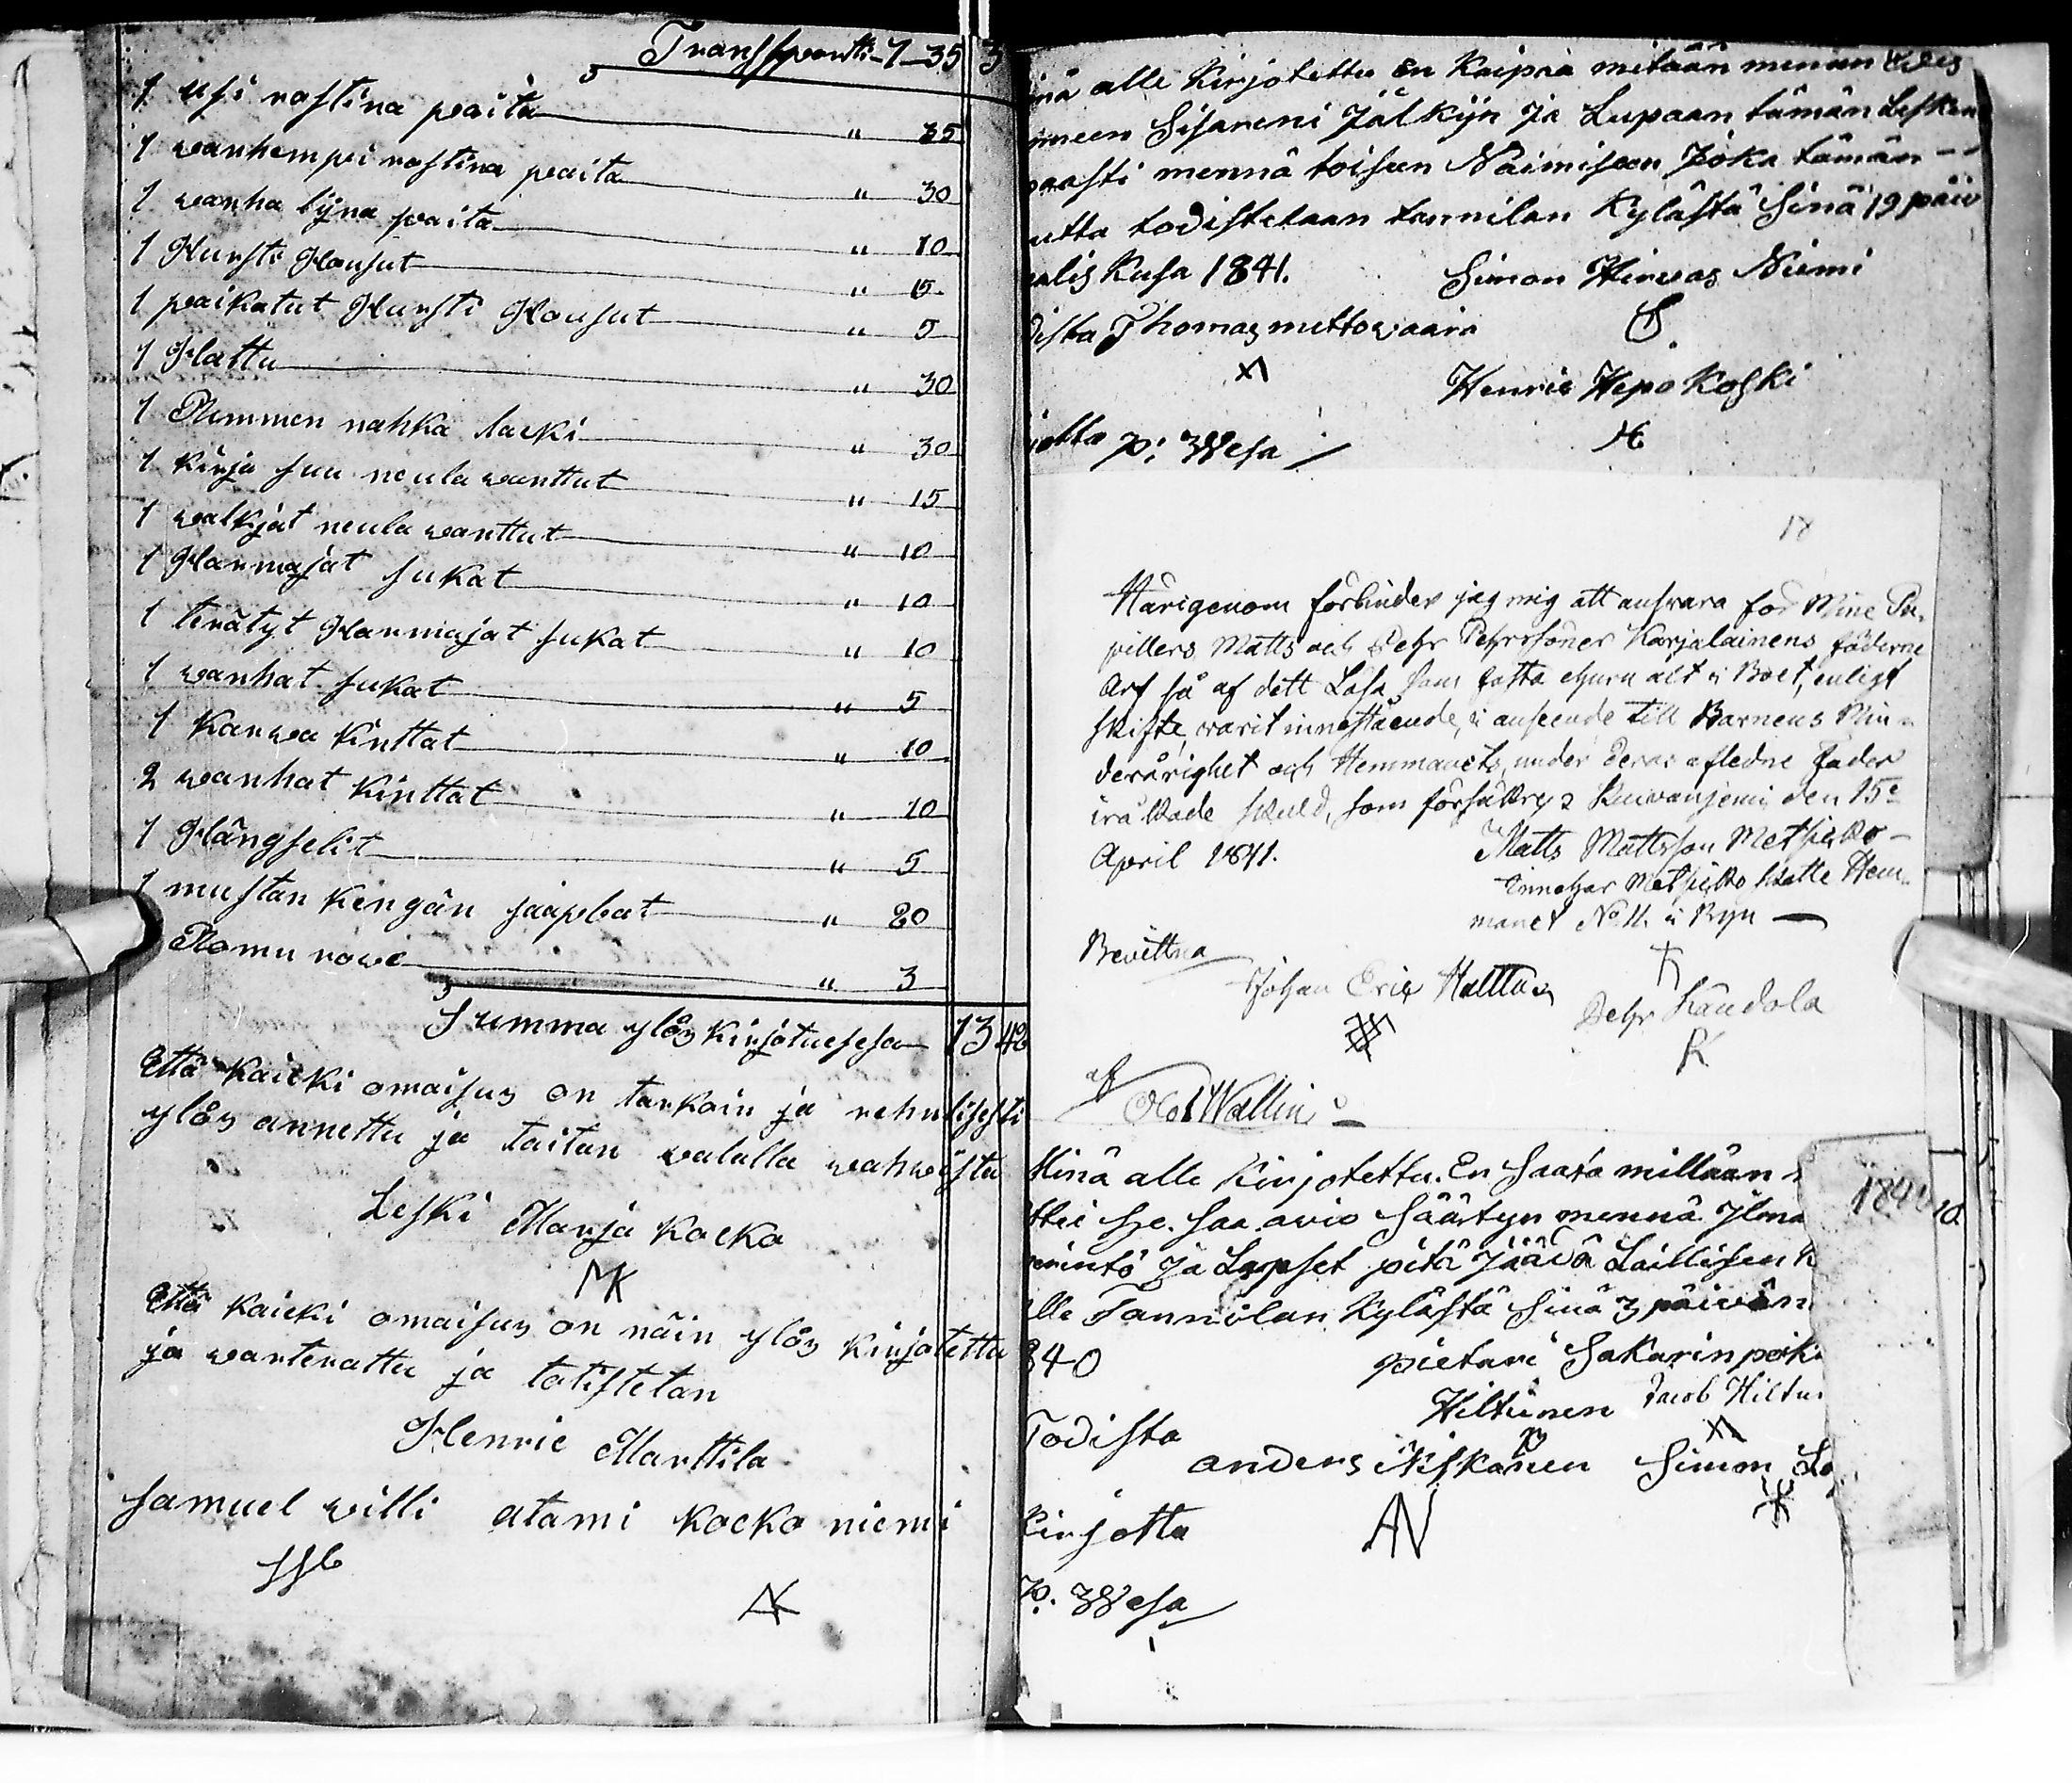 Transsportti 7 35 3
1 usi rostina paita " 35
1 wanhempi rostina paita " 30
1 wanha lijna paita " 10
1 Hursti Housut " 15
1 paikatut Hursti Housut " 5
1 Hattu " 30
1 Rummen nahka lacki " 30
1 kirja suu neula wanttut " 15
1 walkjat neula wanttut " 10
1 Harmajat sukat " 10
1 terätyt Harmajat sukat " 10
1 wanhat sukat " 5
1 Karwa kinttat " 10
2 wanhat kinttat " 10
1 Hängselit " 5
1 mustan kengän saapbat " 20
Romu rowe " 3
Summa ylös kirjotuesesa 13 48
Että kaicki omaisus on tarkoin ja rehelisesti
ylös annettu ja taitan walalla wahwista
Leski Marja kocko
MK
Että kaicki omaisus on näin ylös kirjotettu
ja warterattu ja totistetan
Henric Marttila
Samuel willi atami kocko niemi
AK
inä alle Kirjotettu En Kaipaa mitään minun
imeen Sisareni Jälkijn Ja Lupaan tämän Lesken
paasti mennä toiseen Naimiseen Joka tämän
utta todistetaan tannilan Kylästä Sinä 19 päiv
alis Kusa 1841. Simon Hirwas Niemi
dista Thomas mettowaara S.
Henric Hepo Koski
jotta p: Wesa H
18
Härigenom förbinder jag mig att answara for Mine Pu-
pillers Matts och Pehr Pehrssöner Karjalainens fäderne
Arf så af dett Lösa som fasta ehuru alt i Boet, enligt
skifte, warit innestående, i anseende till Barnens Min-
derårighet och Hemmanets, under deras afledne fader
iråkade skuld, som försäkras Kuivaniemi den 15e
April 1841. Matts Mattsson Metsjerko
innehar Metsjerko skatte Hem-
manet No 11. i Byn
Bevittna
Johan Eric Halttu Pehr Kandola
PK
af
Olof Wallin
Minä alle Kirjotettu. En Saata millään
ttei se. saa awio Säätyn mennä Jlma
mintö Ja Lapset pitä Jäävä Laillisen
lle Tannilan Kylästä Sinä 3 päivän
840 pietari Sakarin poika
Hiltunen Jacob Hiltu
Todista
anders Niskanen Simon Lo
Kirjotta AN
P. Wesa
1840